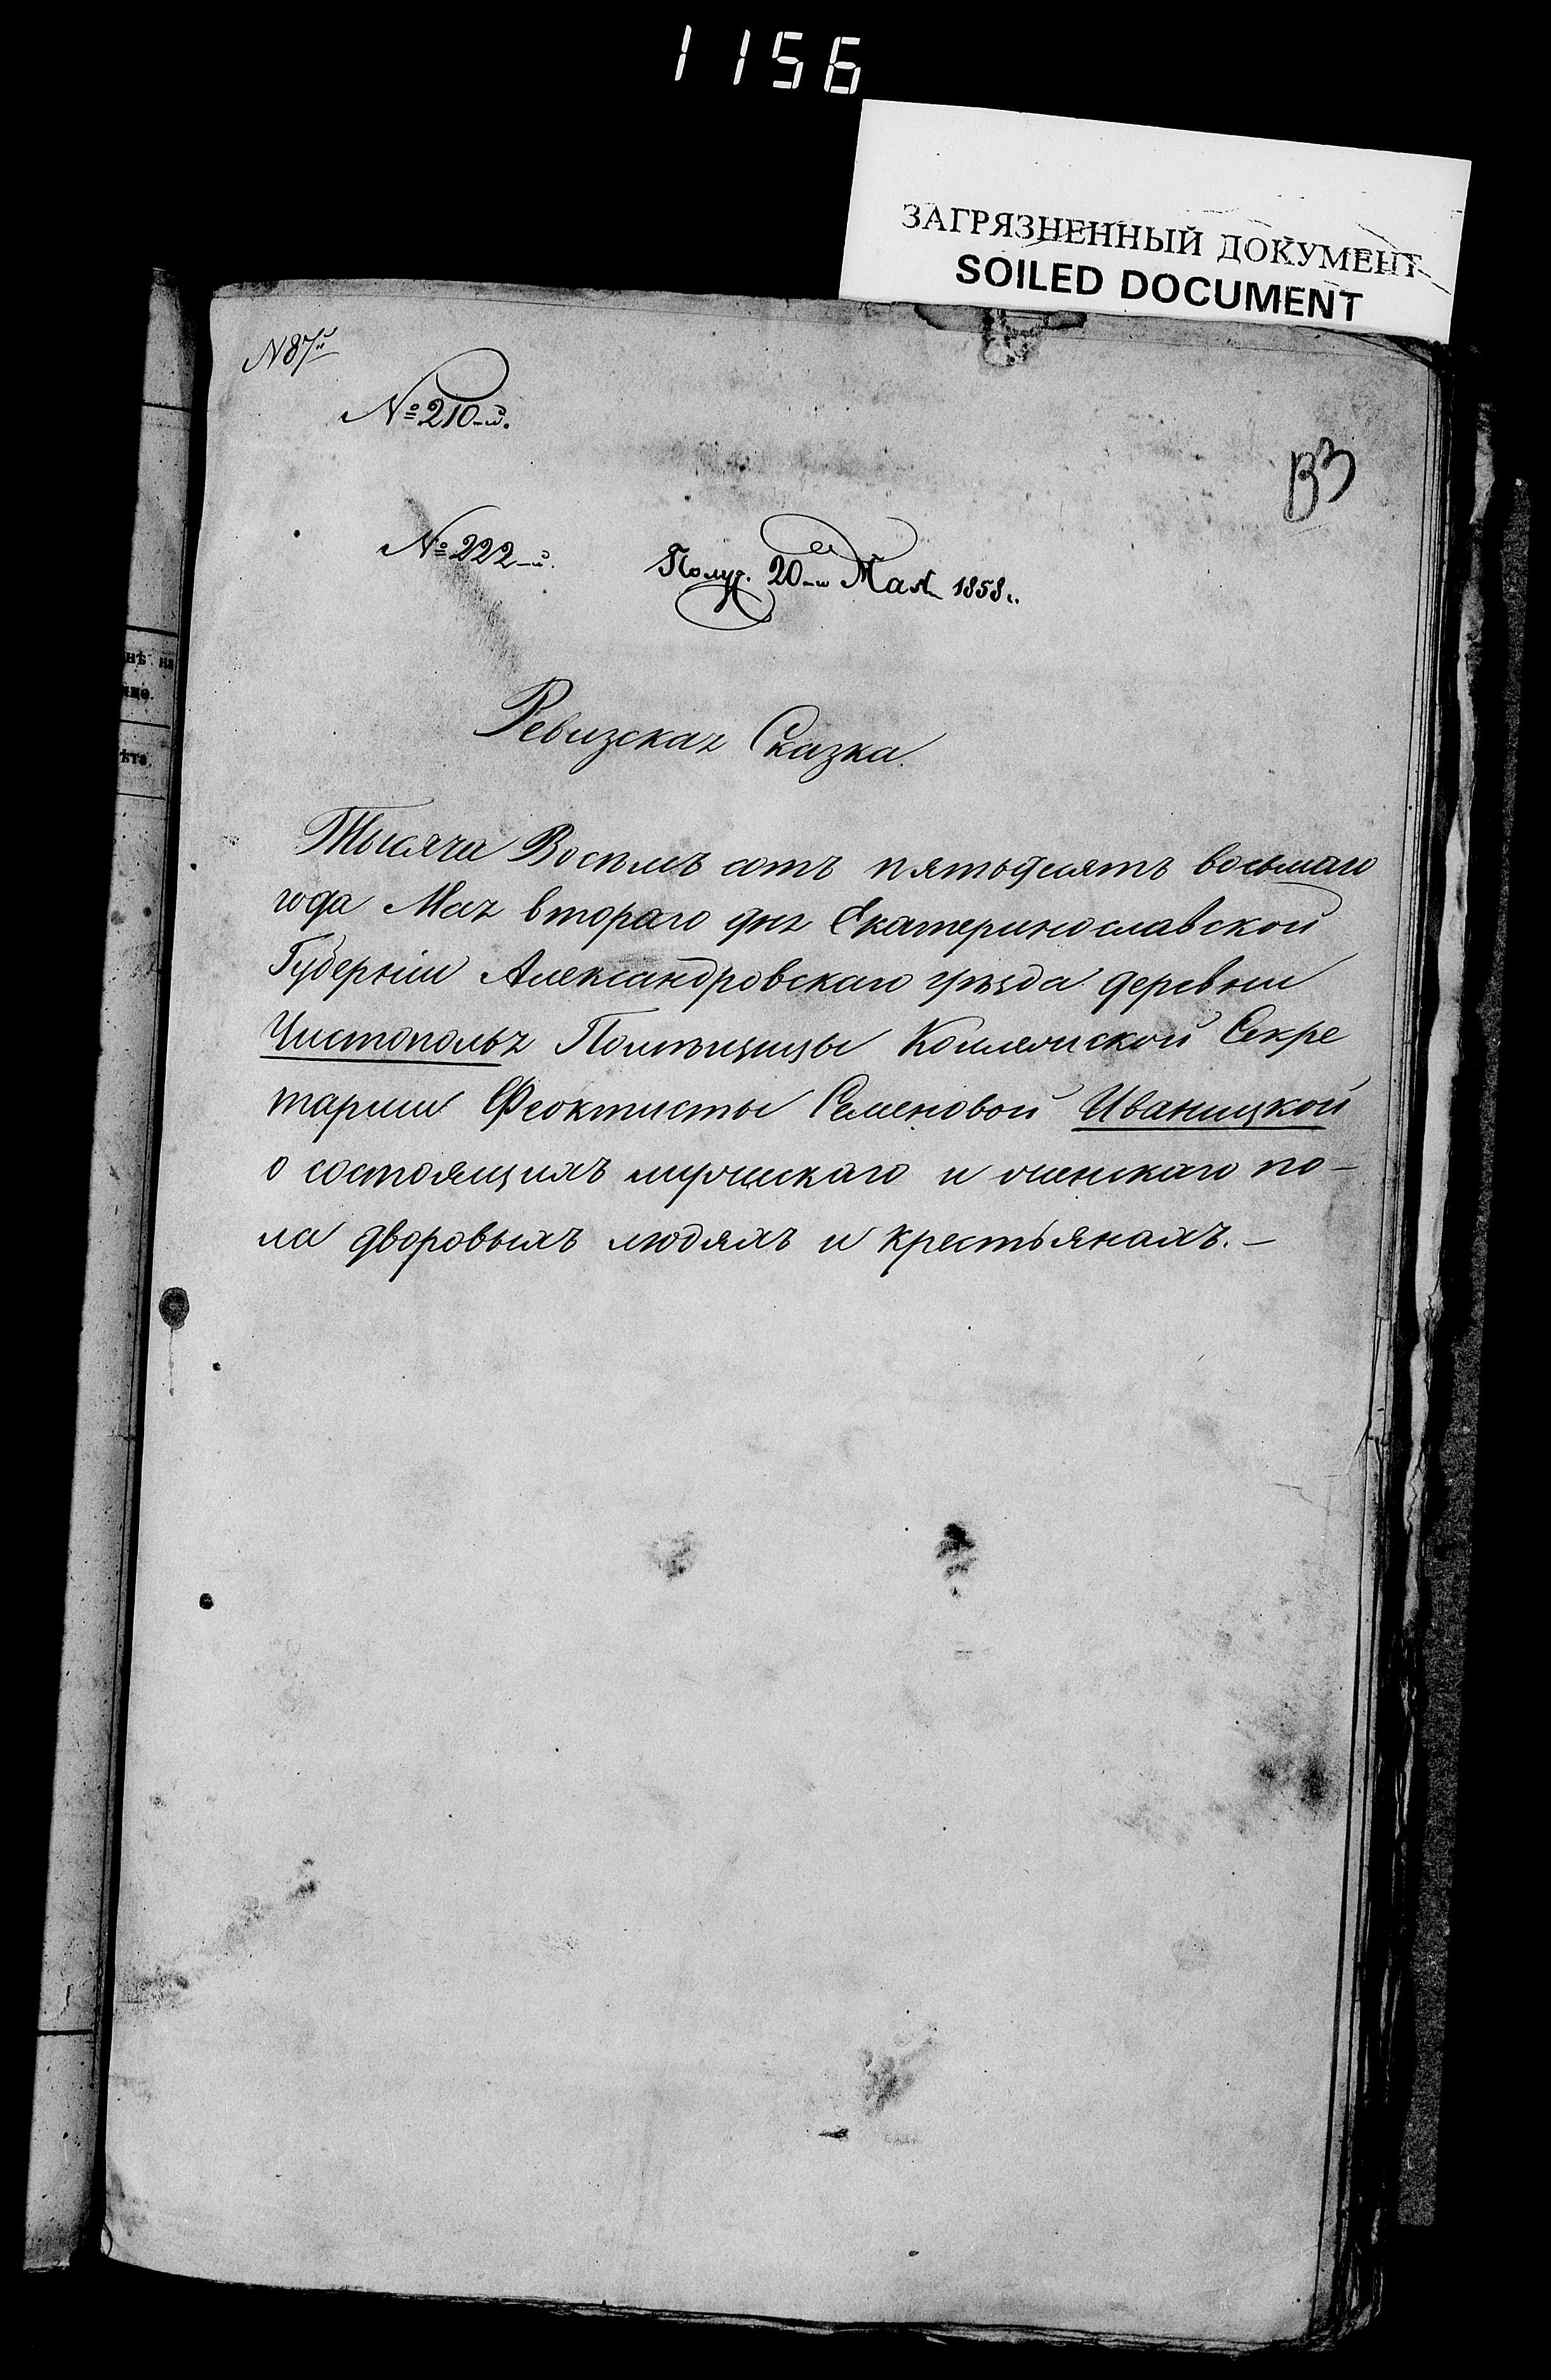 1156
ЗАГРЯЗНЕННЫЙ ДОКУМЕНТ
SOILED DOCUMENT
N 87й
№ 210-й.
№ 222-й.
Получ. 20-го Мая 1858 г.
Ревизская Сказка.
Тысяча Восемь сотъ пятьдесятъ восьмаго
года Мая втораго дня Екатеринославской
Губерніи Александровскаго уѣзда деревни
Чистополья Помѣщицы Коллежской Секре
тарши Феоктисты Семеновой Иваницкой
о состоящихъ мужескаго и женскаго по-
ла дворовыхъ людяхъ и крестьянахъ.-